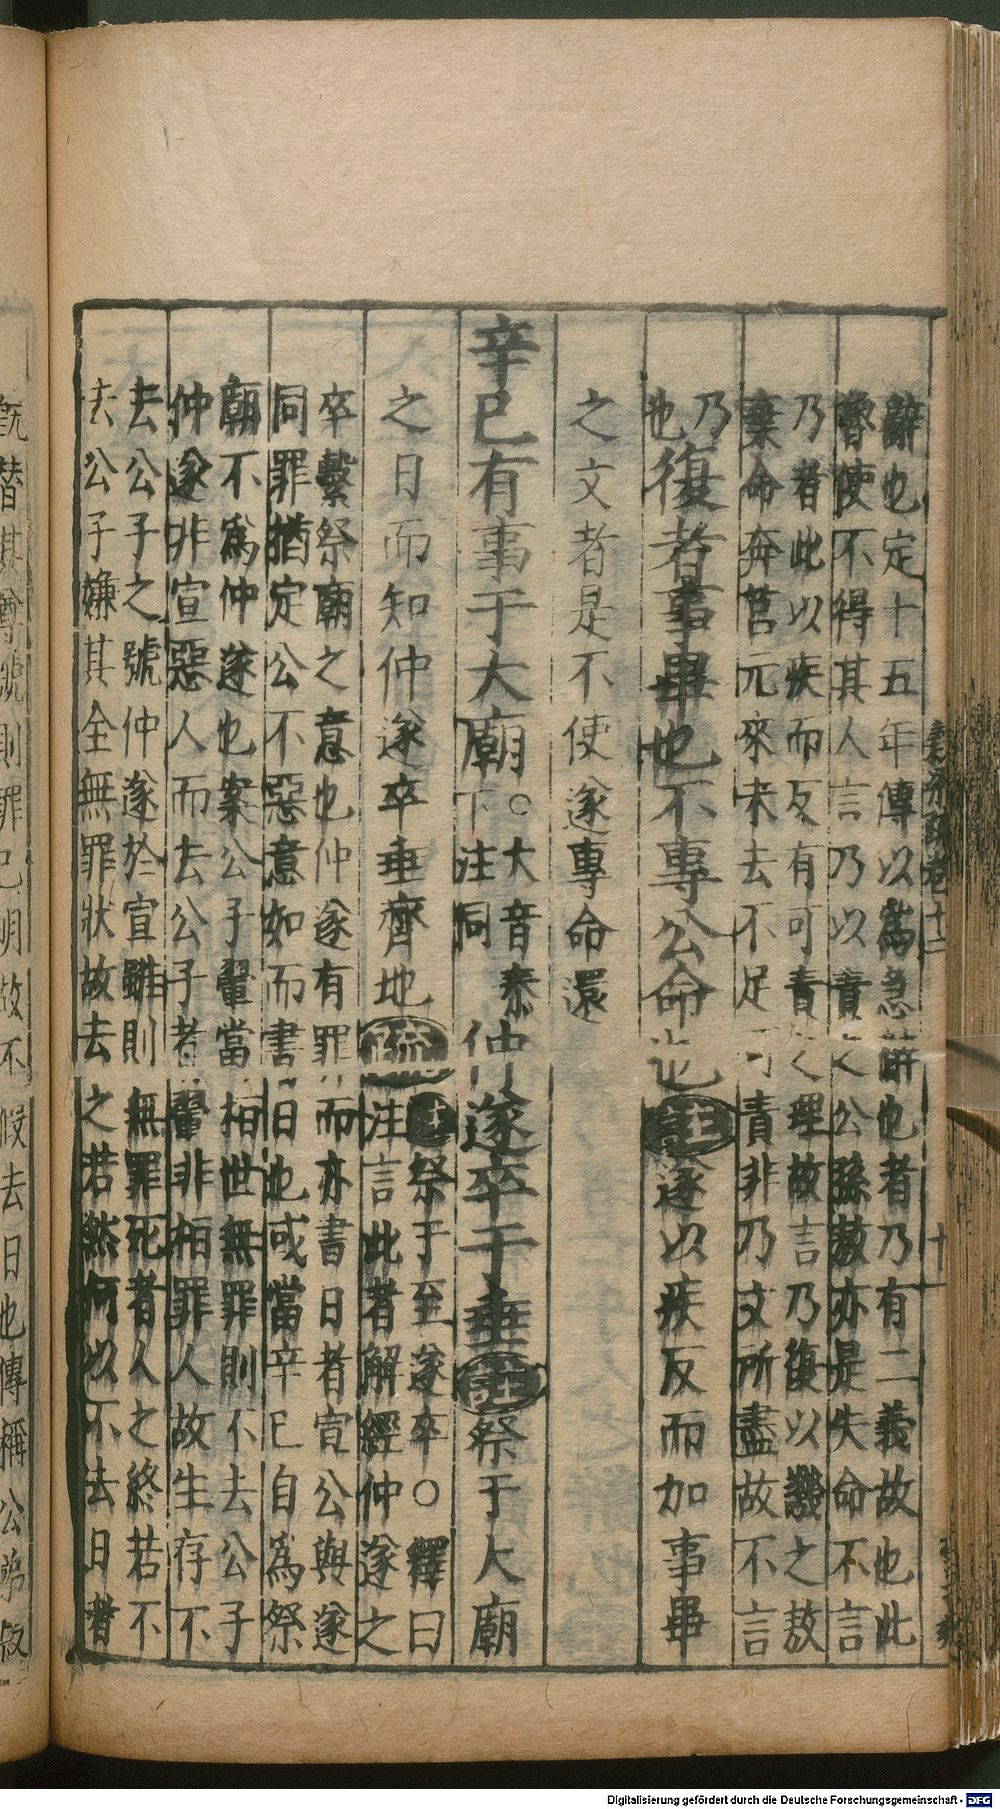 辭也定十五年傳以為急辭也者乃有二義故也此
魯使不得其人言乃以責之公孫敖亦是失命不言
乃者此以疾而反有可責之理故言乃復以譏之敖
棄命奔莒元來未去不足可責非乃文所盡故不言
乃
也復者事畢也不專公命也註遂以疾反而加事畢
之文者是不使遂專命還
辛巳有事于大廟○大音泰
下注同
仲遂卒于垂註祭于大廟
之日而知仲遂卒垂齊地疏
註祭于至遂卒○釋曰
注言此者解經仲遂之
卒繫祭廟之意也仲遂有罪而亦書日者宣公與遂
同罪猶定公不惡意如而書日也或當辛巳自為祭
廟不為仲遂也案公子翬當桓世無罪則不去公子
仲遂非宣惡人而去公子者翬非桓罪人故生存不
去公子之號仲遂於宣雖則無罪死者人之終若不
去公子嫌其全無罪狀故去之若然何以不去日者
既替其尊號則罪已明故不假去日也傳稱公弟叔
十二
十一
Digitalisierung gefördert durch die Deutsche Forschungsgemeinschaft - DFG